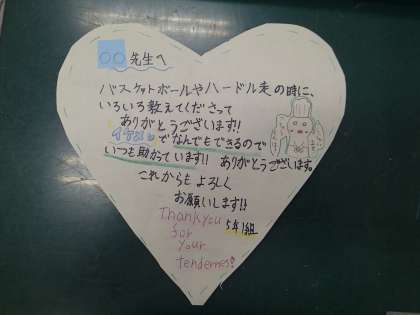 ○○先生へ
バスケットボールやハードル走の時に、
いろいろ教えてくださって
ありがとうございます!!
イケメンでなんでもできるので
いつも助かっています!! ありがとうございます。
これからもよろしく
お願いします!!
5年1組
Thank you
for
your
tendernes!